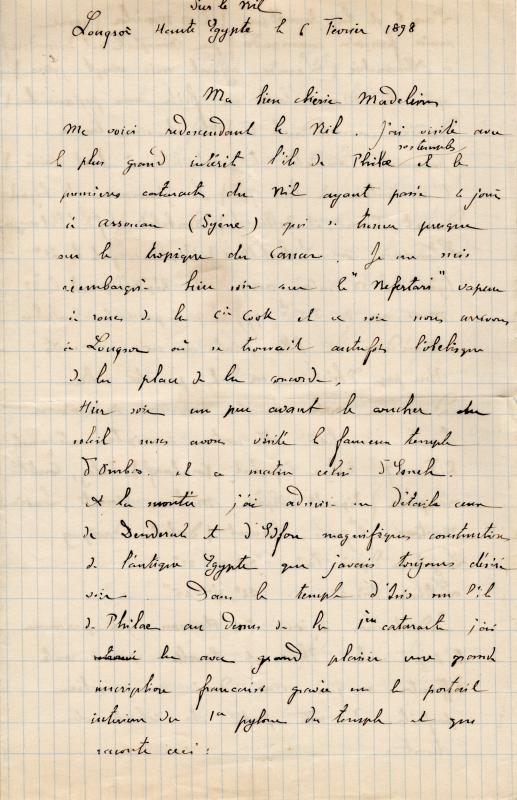 Sur le Nil
Louqsor Haute Egypte le 6 Fevrier 1898
Ma bien chérie Madeleine
Me voici redescendant le Nil. J'ai visité avec
le plus grand intérêt l'ile de Philae ses temples et la
premières cataracte du Nil ayant passé 4 jours
à assouan (Syène) qui se trouve presque
sur le tropique du Cancer. Je me suis
réembarqué hier soir sur le "Nefertari" vapeur
à roues de la Cie Cook et ce soir nous arrivons
à Louqsor où se trouvait autrefois l'obélisque
de la place de la concorde.
Hier soir un peu avant le coucher du
soleil nous avons visité le fameux temple
d'Ombos. et ce matin celui d'Esneh.
A la montée j'ai admiré en détails ceux
de Denderah et d'Edfou magnifiques constructions
de l'antique Egypte que j'avais toujours désiré
voir. Dans le temple d'Isis sur l'ile
de Philae au dessus de la 1ere cataracte j'ai
lu avec grand plaisir une grande
inscription française gravée sur le portail
intérieur du 1er pylone du temple et qui
raconte ceci :